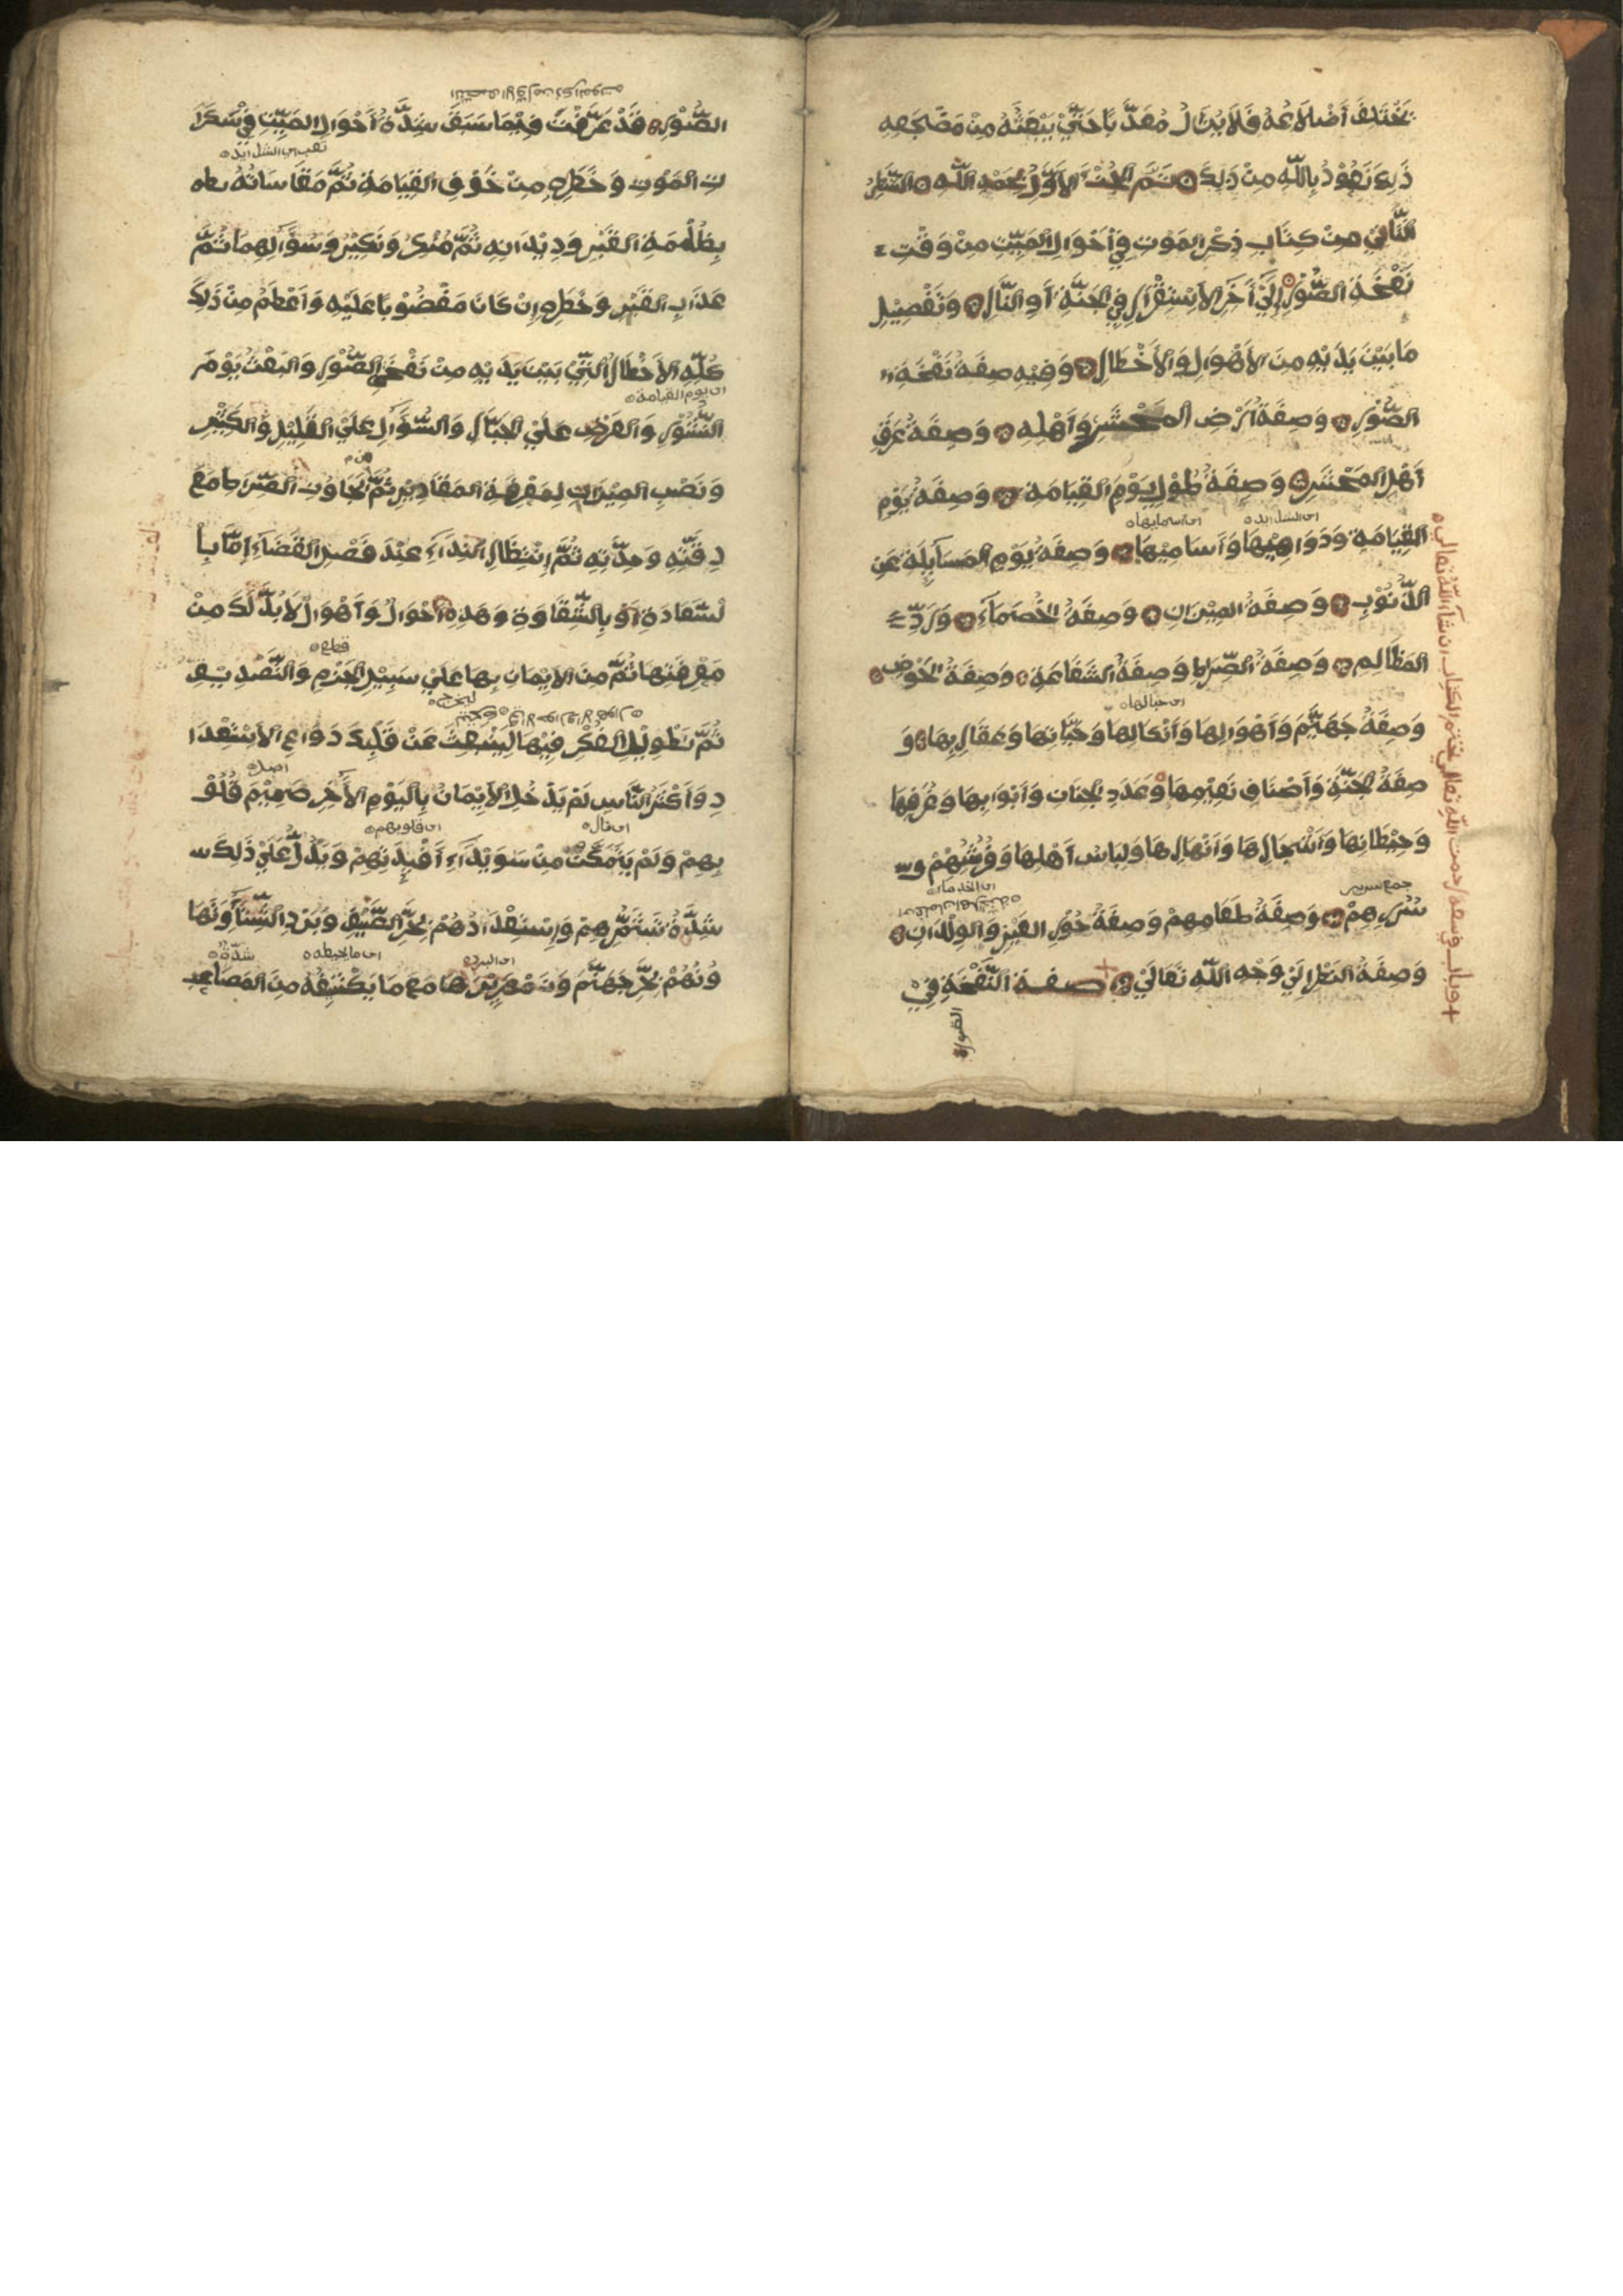 تَخْتَلِفَ أَضْلَاعُهُ فَلَا يَزَالُ مُعَذَّبًا حَتَّى يَبْعَثَهُ مِنْ مَضْجَعِهِ
ذَلِكَ نَعُوْذُ بِاللّهِ مِنْ ذَلِكَ تَمَّ الجُزْءُ الأَوَّلُ بِحَمْدِ اللّهِ الشَّطْرُ
الثَّانِيْ مِنْ كِتَابِ ذِكْرِ المَوْتِ فِيْ أَحْوَالِ المَيِّتِ مِنْ وَقْتِ
نَفْخَةِ الصُّوْرِ إِلَى أَخَرِ الأِسْتِقْرَارِ فِي الجَنَّةِ أَوِ النَّارِ وَتَفْصِيْلِ
مَا بَيْنَ يَدَيْهِ مِنَ الأَهْوَالِ وَالأَخْطَارِ وَفِيْهِ صِفَةُ نَفْخَةِ
الصُّوْرِ وَصِفَةُ أَرْضِ المَحْشَرِ وَأَهْلِهِ وَصِفَةُ عَرَقِ
أَهْلِ المَحْشَرِ وَصِفَةُ طُوْلِ يَوْمِ القِيَامَةِ وَصِفَةُ يَوْمِ
اى الشدايد اى اسمايها
القِيَامَةِ وَدَوَاهِيْهَا وَأَسَامِيْهَا وَصِفَةُ يَوْمِ المَسَآيِلَةِ عَنِ
الذُّنُوْبِ وَصِفَةُ المِيْزَانِ وَصِفَةُ الخُصَمَآءِ وَرَدِّ
المَظَالِمِ وَصِفَةُ الصِّرَاطِ وَصِفَةُ الشَّفَاعَةِ وَصِفَةُ الحَوْضِ
اى حبالها
وَصِفَةُ جَهَنَّمَ وَأَهْوَالِهَا وَأَنْكَالِهَا وَحَيَّاتِهَا وَعَقَارِبِهَا وَ
صِفَةُ الجَنَّةِ وَأَصْنَافِ نَعِيْمِهَا وَعَدَدِ الجِنَانِ وَأَبْوَابِهَا وَغُرَفِهَا
وَحِيْطَانِهَا وَأَشْجَارِهَا وَأَنْهَارِهَا وَلِبَاسِ أَهْلِهَا وَفُرُشِهِمْ وَ
جمع سرير
سُرُرِهِمْ وَصِفَةُ طَعَامِهِمْ وَصِفَةُ حُوْرِ العِيْنِ وَالوِلْدَانِ
وَصِفَةُ النَظَرِ إِلَى وَجْهِ اللّهِ تَعَالَى صفة النَّفْخَةِ فِيْ
الصورة
الصُّوْرِ قَدْ عَرَفْتَ فِيْمَا سَبَقَ شِدَّةُ أَحْوَالِ المَيِّتِ فِيْ سَكَرَا
تِ المَوْتِ وَخَطَرِهِ مِنْ خَوْفِ القِيَامَةِ ثُمَّ مَقَاسَاتُهُ
بِظُلْمَةِ القَبْرِ وَدِيْدَانِهِ ثُمَّ مُنْكَرُ وَنَكِيْرُ وَسُؤَالِهِمَا ثُمَّ
عَذَابِ القَبْرِ وَخَطَرِهِ إِنْ كَانَ مَغْضُوْبًا عَلَيْهِ وَأَعْظَمُ مِنْ ذَلِكَ
كُلِّهِ الأَخْطَارُ الَّتِيْ بَيْنَ يَدَيْهِ مِنْ نَفْخِ الصُّوْرِ وَالبَعْثُ يَوْمَ
اى يوم القيامة
النُّشُوْرِ وَالعَرْضِ عَلَى الجَبَّارِ وَالسُّؤَالِ عَلَى القَلِيْلِ وَالكَثِيْرِ
وَنَصْبِ المِيْزَانِ لِمَعْرِفَةِ المَقَادِيْرِ ثُمَّ الجَاوُزِ الصِّرَاطِ مَعَ
دِقَّتِهِ وَحِدَّتِهِ ثُمَّ إِنْتِظَارِ النِدَآءِ عِنْدَ فَصْلِ القَضَآءِ إِمَّا بِا
لسَّعَادَةِ أَوْ بِالشِّقَاوَةِ وَهَذِهِ أَحْوَالُ وَأَهْوَالُ لَا بُدَّ لَكَ مِنْ
قطع
مَعْرِفَتِهَا ثُمَّ مِنَ الإِيْمَانِ بِهَا عَلَى سَبِيْلِ الجَزْمِ وَالتَّصْدِيْقِ
ليخرج
ثُمَّ تَطْوِيْلِ الفِكْرِ فِيْهَا لِيَنْبَعِثَ عَنْ قَلْبِكَ دَوَاعِ الأِسْتِعْدَا
دِ وَأَكْثَرُ النَّاسِ لَمْ يَدْخُلِ الأِيْمَانُ بِاليَوْمِ الأَخِرِ صَمِيْمَ قُلُوْ
اى قلوبهم
بِهِمْ وَلَمْ يَتَمَكَّنْ مِنْ سَوَيْدَآءِ أَفْيِدَتِهِمْ وَيَدُلُّ عَلَى ذَلِكَ
شِدَّةُ تَشَمُّرِهِمْ وَإِسْتِعْدَادُهُمْ بِحَرِّ الصَّيْفِ وَبَرْدِ الشِّتَآءِ وَتَهَا
اى البرد اى ما يحيطه شدة
وُنُهُمْ بِحَرِّ جَهَنَّمَ وَزَمْهَرِيْرِهَا مَعَ مَا يَكْتَنِفُهُ مِنَ المَصَاعِبِ